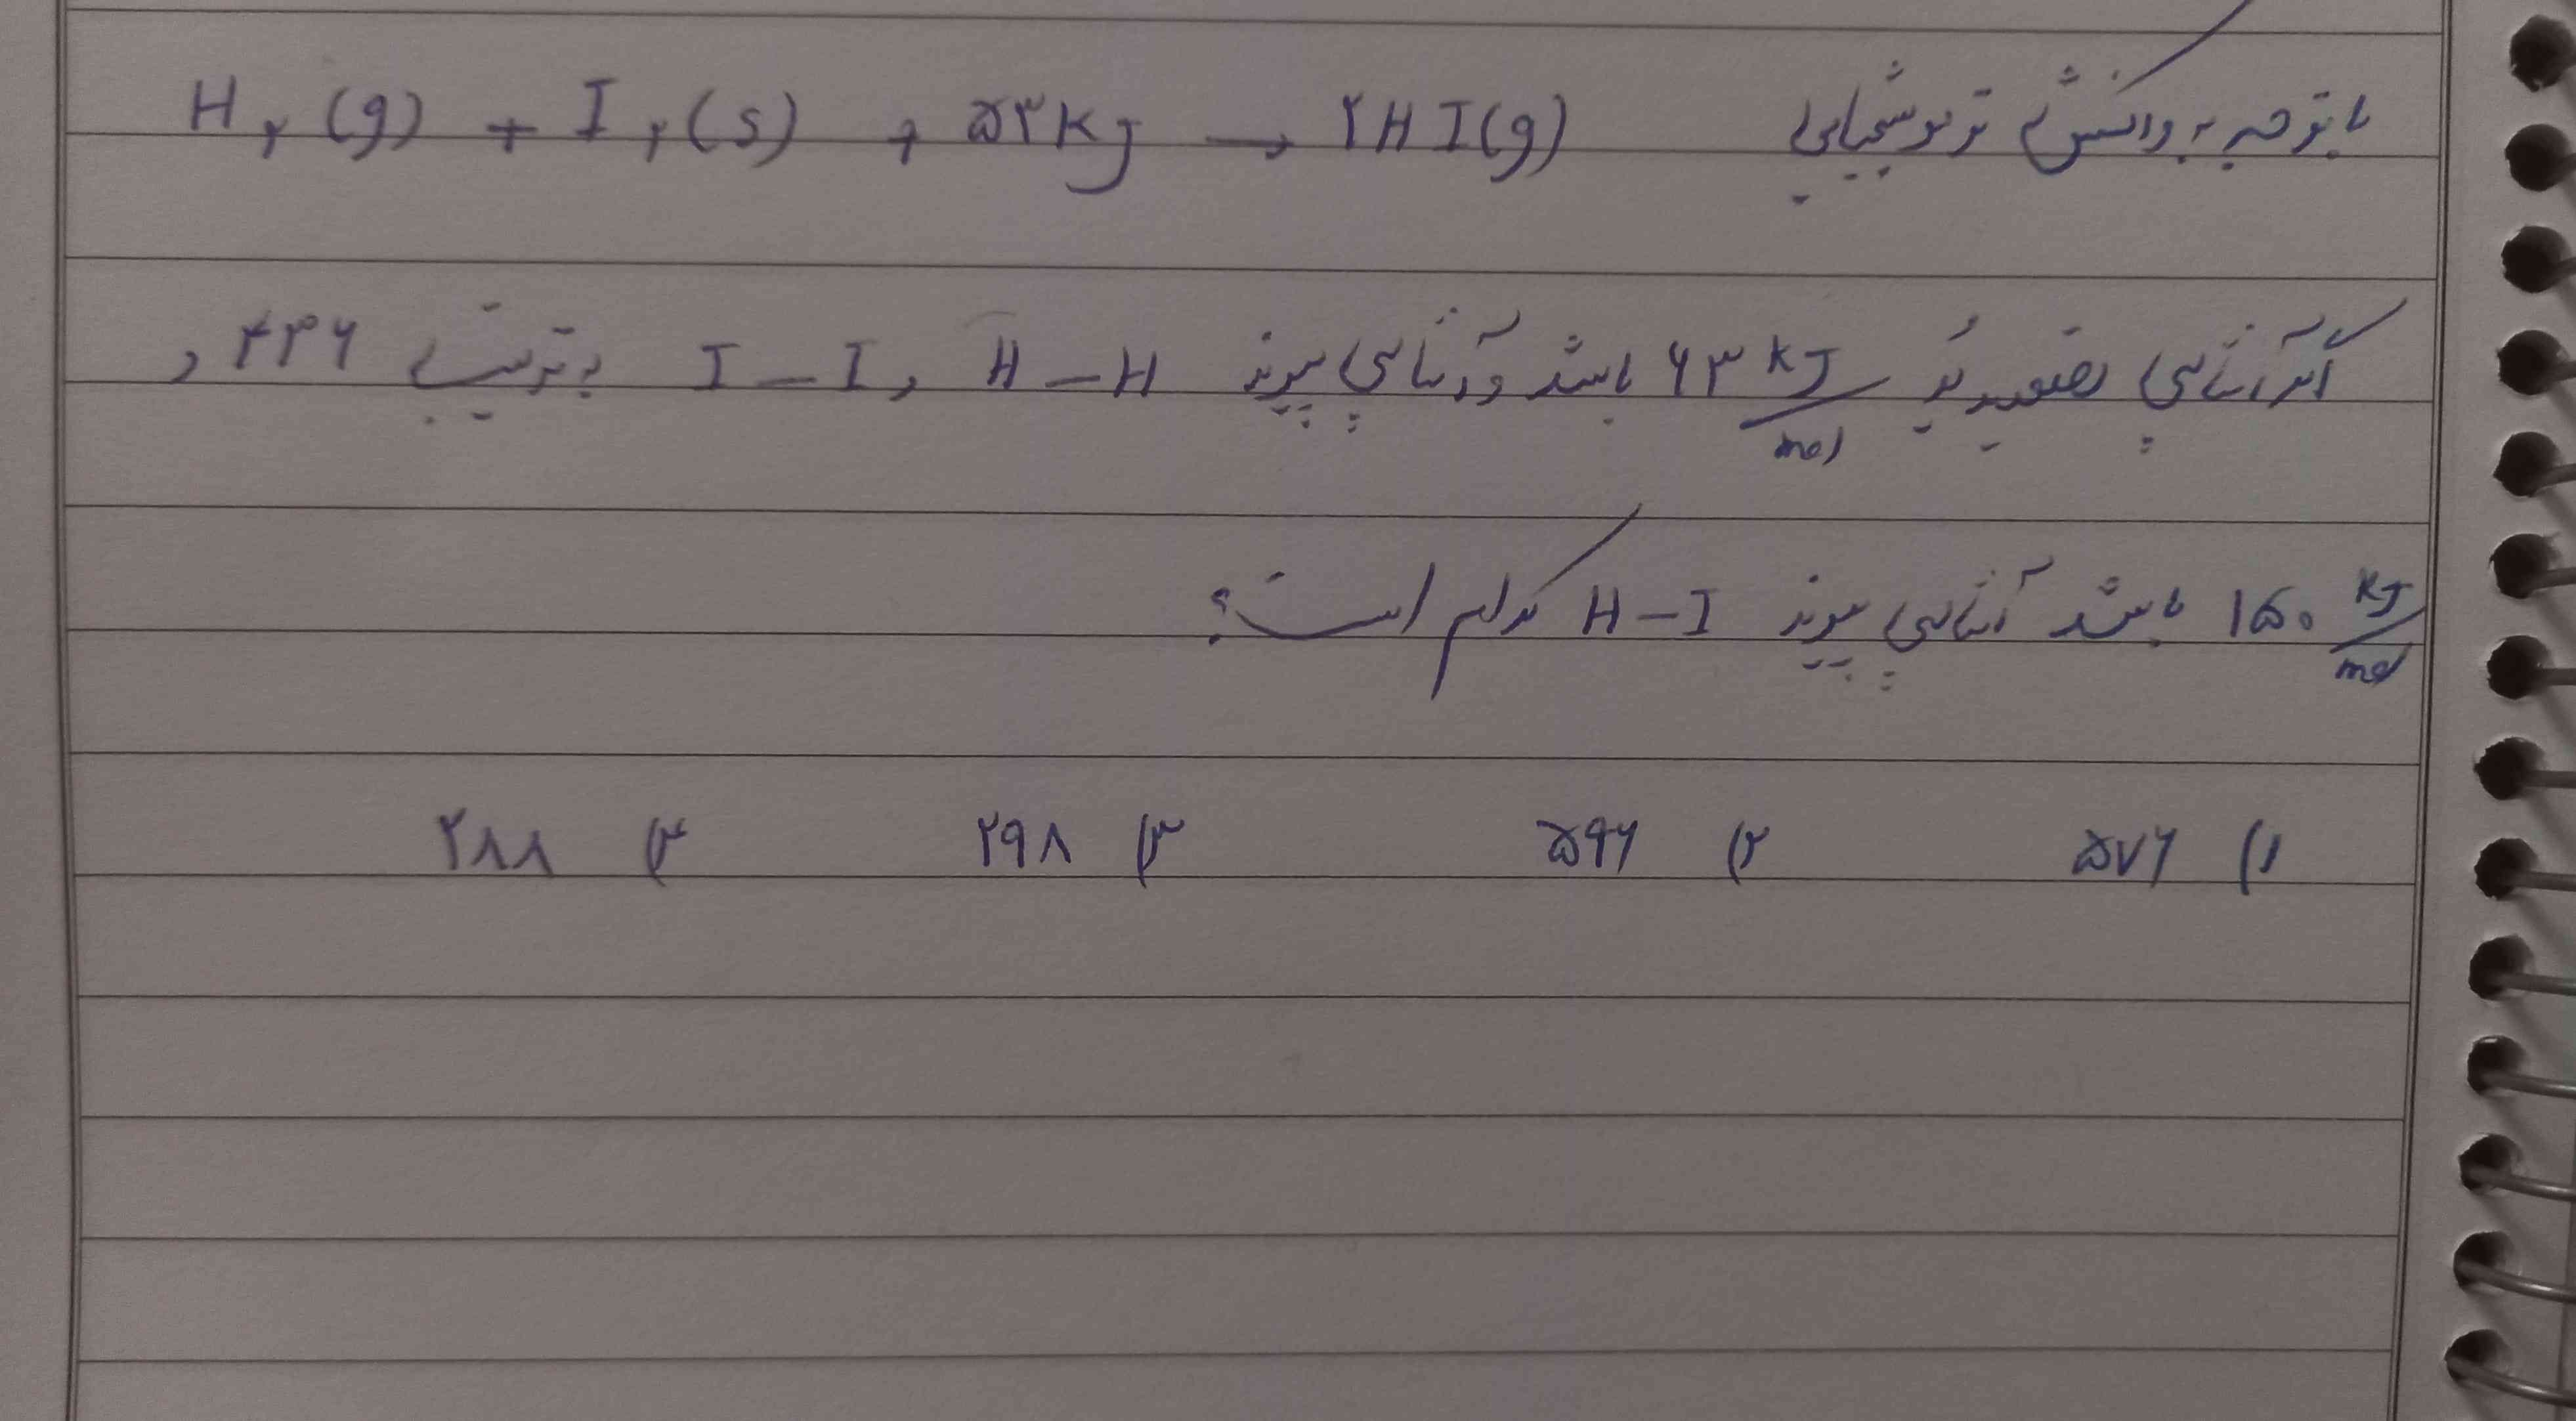 با توجه به واکنش ترموشیمیایی H₂(g) + I₂(s) + ۵۳KJ → ۲HI(g)
اگر آنتالپی تصعید ید ۶۳ KJ/mol باشد و آنتالپی پیوند H – H و I – I به ترتیب ۴۳۶ و
۱۵۰ KJ/mol باشد آنتالپی پیوند H – I کدام است؟
۱) ۵۷۶ ۲) ۵۹۶ ۳) ۲۹۸ ۴) ۲۸۸